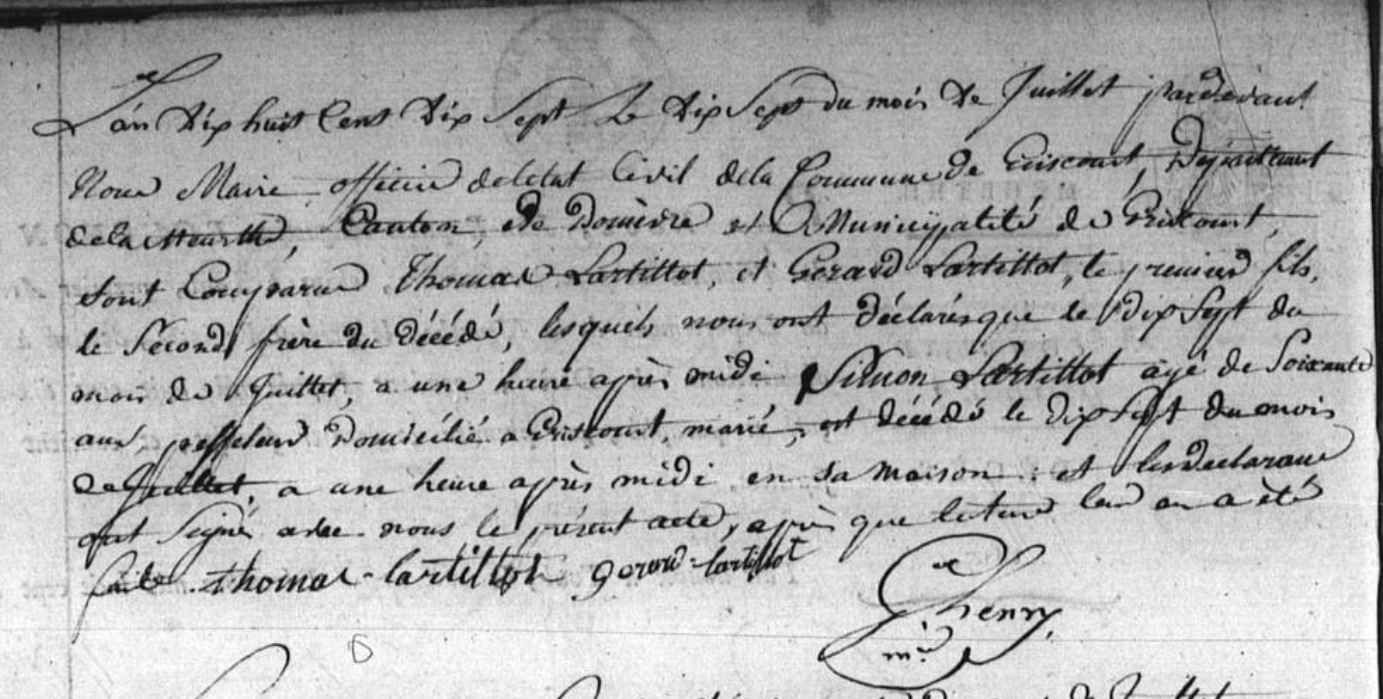 L'an dix huit cent dix Sept Le dix Sept du mois de Juillet pardevant
Nous Maire officier deletat Civil dela Commune de Griscourt, Departement
dela Meurthe, Canton de Domèvre et Municipalité de Griscourt,
sont Comparus Thomas Lartillot, et Gerard Lartillot, le premier fils,
le Second frère du décédé, lesquels nous ont déclarés que le dix Sept du
mois de Juillet, a une heure après midi Simon Lartillot agé de Soixante
ans, domicilié a Griscourt, marié, est décédé le dix Sept du mois
de Juillet, a une heure après midi en sa maison : et les declarans
ont Signé avec nous le présent acte, après que lecture leur en a été
faite. thomas lartillot gerard lartillot
Chenry
m.re